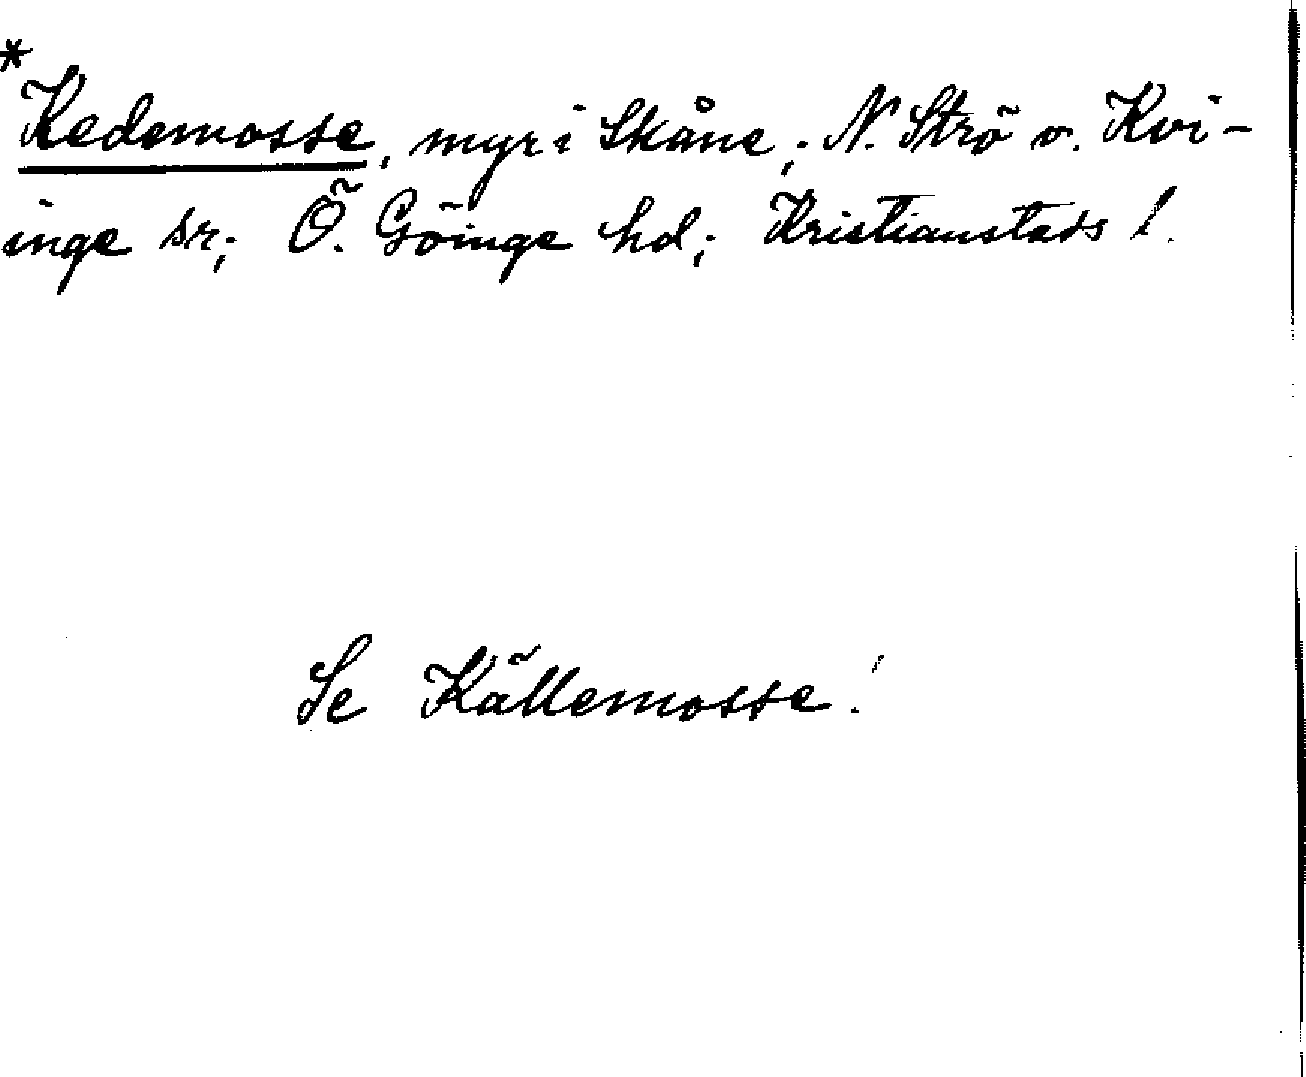 *
Kedemosse, myr i Skåne; N. Strö o. Kvi-
inge sn; Ö. Göinge hd; Kristianstads l.
Se Källemosse!